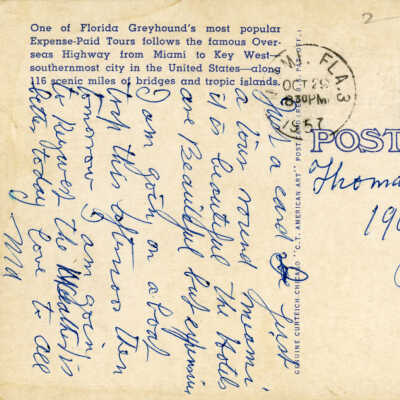 One of Florida Greyhound's most popular
Expense-Paid Tours follows the famous Over-
seas Highway from Miami to Key West—
southernmost city in the United States—along
116 scenic miles of bridges and tropic islands.
2
FLA. 3
OCT 29
830PM
1957
POST
GENUINE CURTEICH-CHICAGO "C.T. AMERICAN ART" POST
Thoma
190
Just a card first
a tour round Miami
it is beautiful the Hotels
are Beautiful but expensive
I am going on a boat
this afternoon then
tomorrow I am going
to Keywest the Weather is
better today love to all
Md